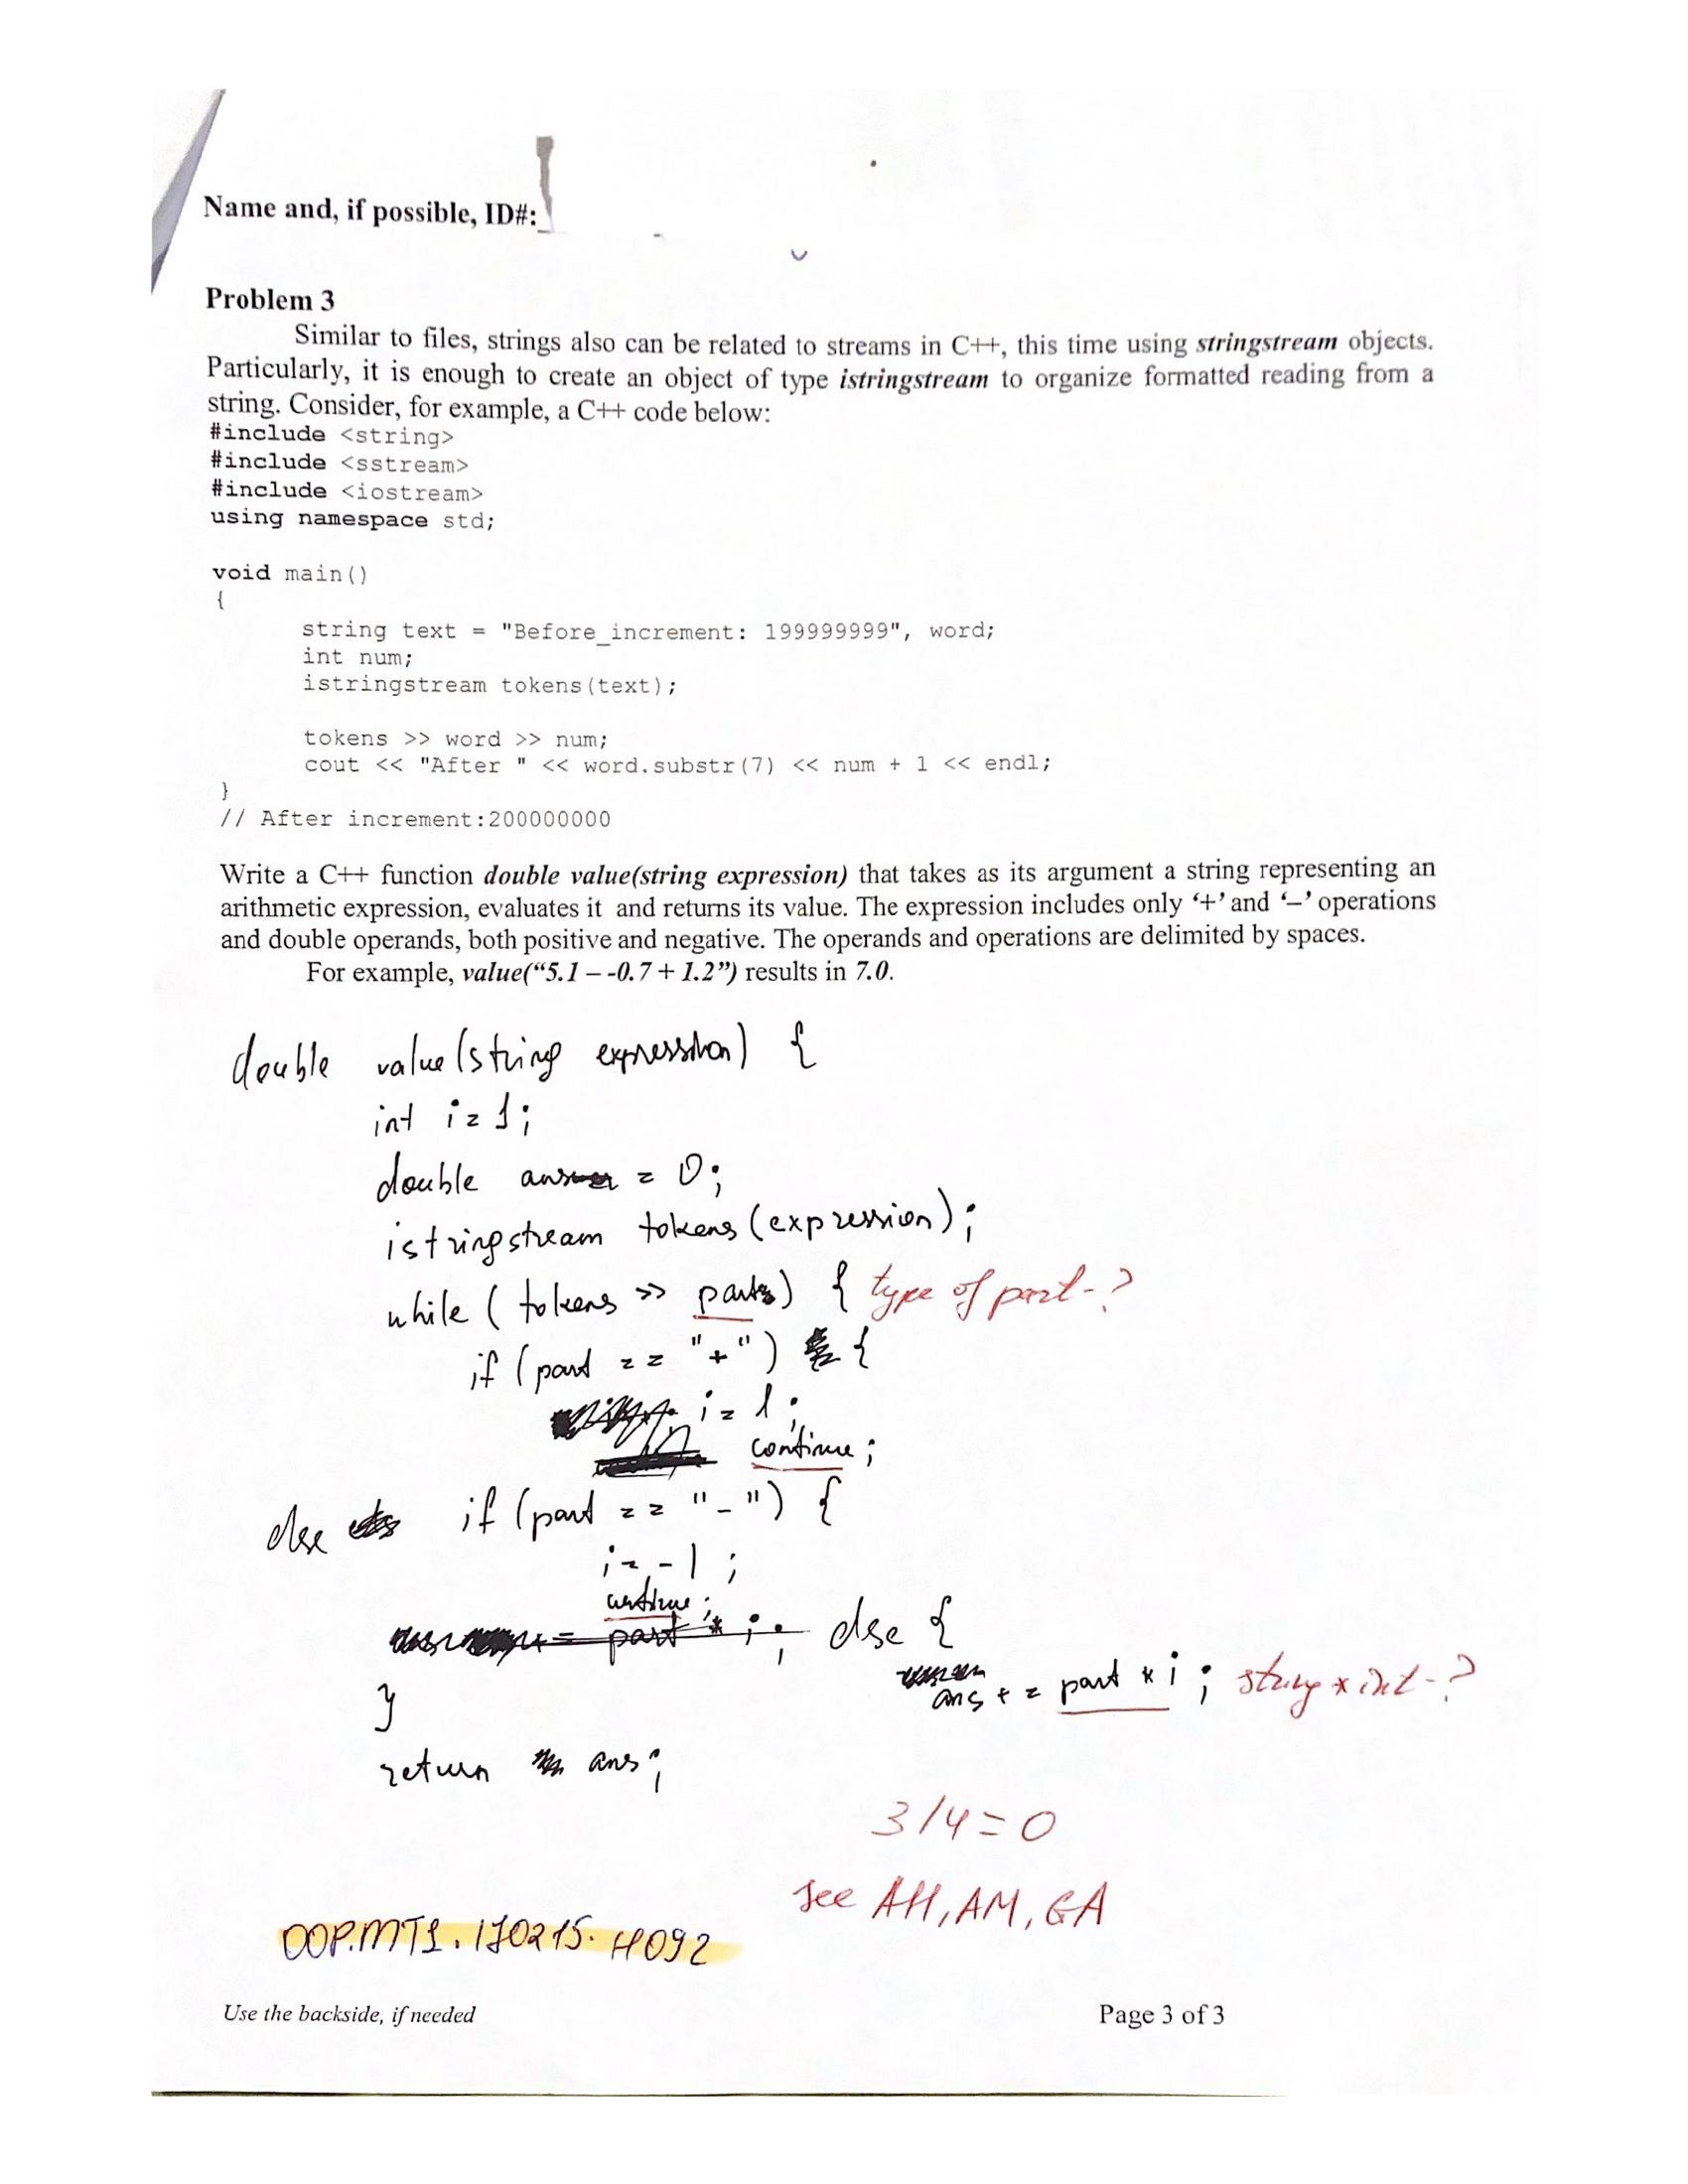 Name and, if possible, ID#:
Problem 3
Similar to files, strings also can be related to streams in C++, this time using stringstream objects.
Particularly, it is enough to create an object of type istringstream to organize formatted reading from a
string. Consider, for example, a C++ code below:
#include <string>
#include <sstream>
#include <iostream>
using namespace std;
void main()
{
string text = "Before_increment: 199999999", word;
int num;
istringstream tokens(text);
tokens >> word >> num;
cout << "After " << word.substr(7) << num + 1 << endl;
}
// After increment:200000000
Write a C++ function double value(string expression) that takes as its argument a string representing an
arithmetic expression, evaluates it and returns its value. The expression includes only ‘+’ and ‘–’ operations
and double operands, both positive and negative. The operands and operations are delimited by spaces.
For example, value(“5.1 – -0.7 + 1.2”) results in 7.0.
double value(string expression) {
int i = 1;
double ans = 0;
istringstream tokens(expression);
while ( tokens >> part) { type of part - ?
if (part == "+") {
i = 1;
continue;
else if (part == "-") {
i = -1;
continue;
part * i; else {
ans += part * i; string * int - ?
}
return ans;
3/4=0
see AH, AM, GA
OOP.MT1.170215.H092
Use the backside, if needed Page 3 of 3